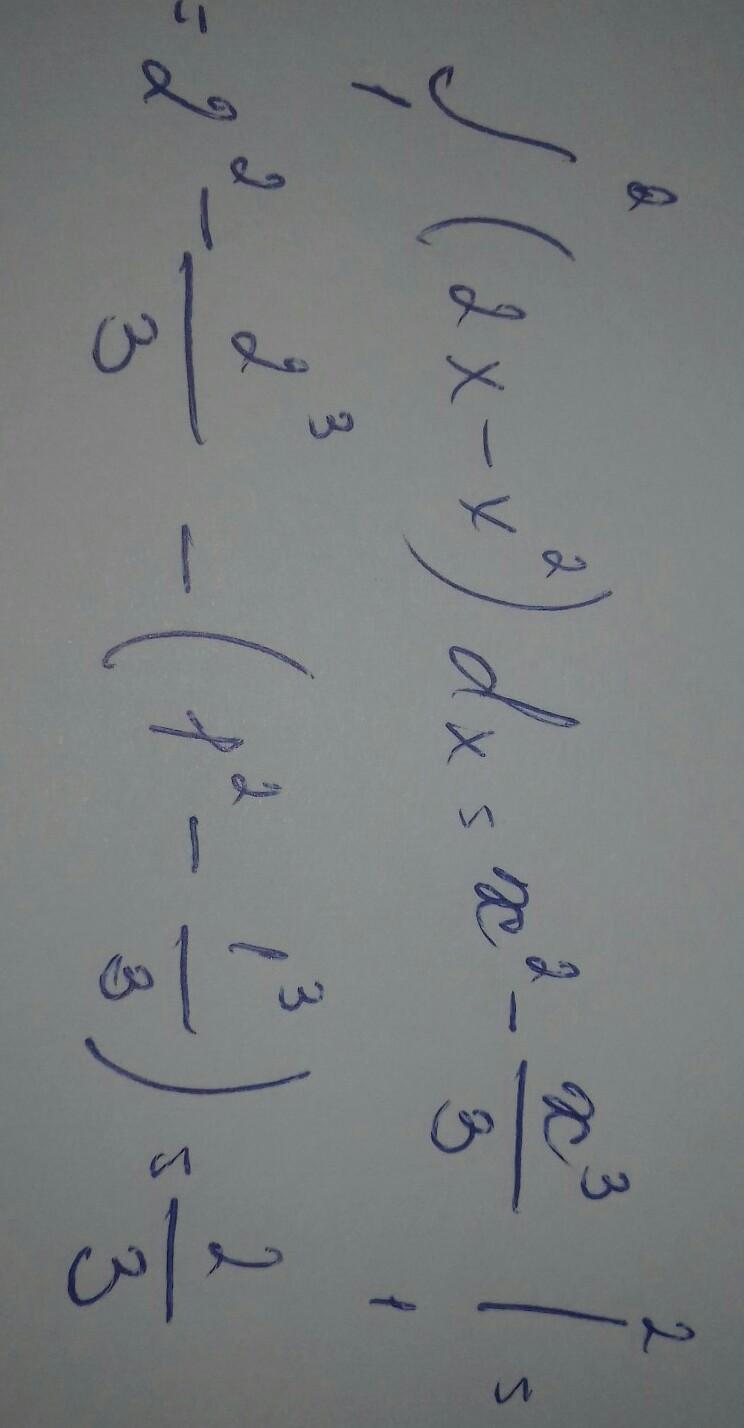 ∫₁² (2x - x²) dx = x² - x³/3 |₁² =
= 2² - 2³/3 - (1² - 1³/3) = 2/3